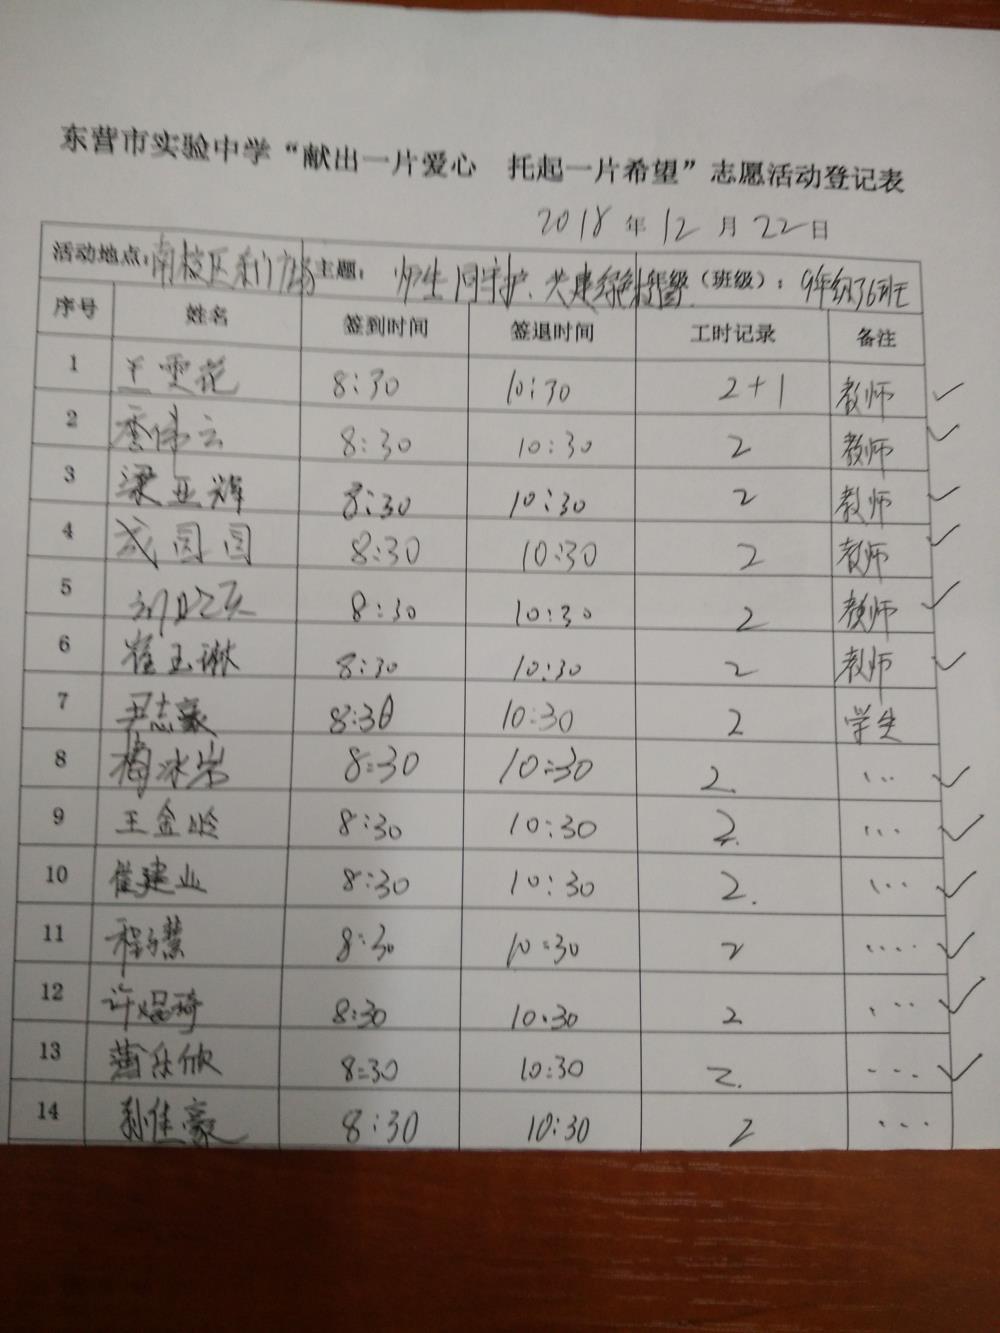 东营市实验中学“献出一片爱心 托起一片希望”志愿活动登记表
2018年12月22日
活动地点：南校区东门广场 主题：师生同守护、共建绿色 年级（班级）：9年级36班
序号 姓名 签到时间 签退时间 工时记录 备注
1 兰雯花 8:30 10:30 2+1 教师 ✓
2 李伟云 8:30 10:30 2 教师 ✓
3 梁亚辉 8:30 10:30 2 教师 ✓
4 8:30 10:30 2 教师 ✓
5 8:30 10:30 2 教师 ✓
6 崔玉琳 8:30 10:30 2 教师 ✓
7 尹志豪 8:30 10:30 2 学生
8 冰岩 8:30 10:30 2. … ✓
9 王金岭 8:30 10:30 2. … ✓
10 崔建业 8:30 10:30 2. … ✓
11 程慧 8:30 10:30 2 …. ✓
12 许焜琦 8:30 10:30 2 … ✓
13 乐欣 8:30 10:30 2. … ✓
14 孙佳豪 8:30 10:30 2 …